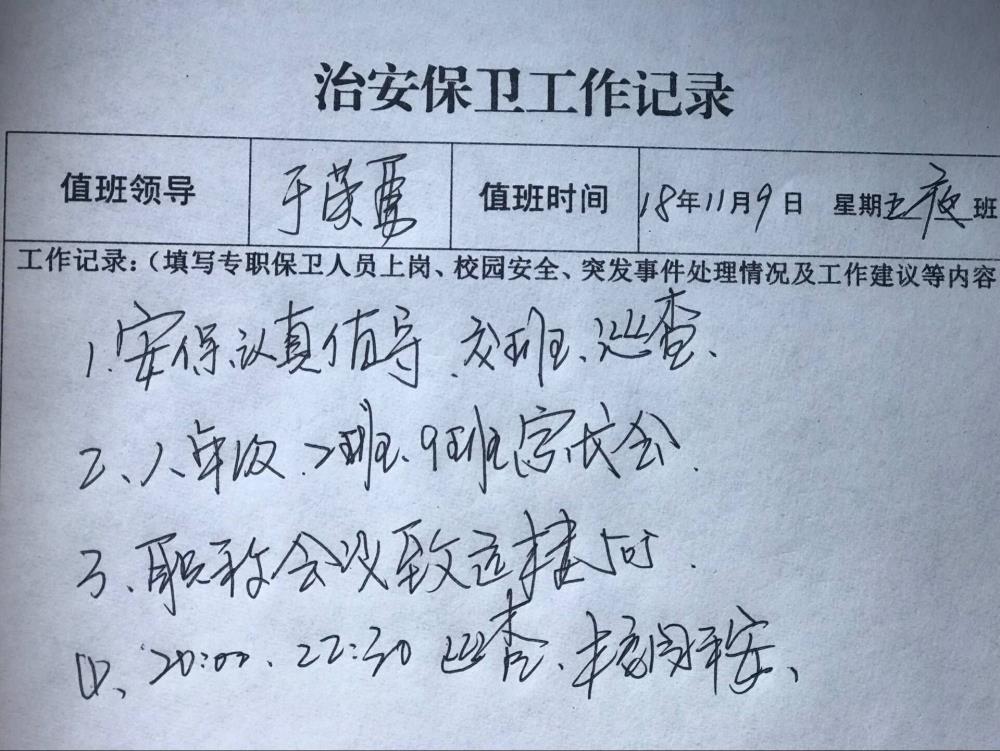 治安保卫工作记录
值班领导 于荣勇 值班时间 18年11月9日 星期五夜班
工作记录:(填写专职保卫人员上岗、校园安全、突发事件处理情况及工作建议等内容
1.安保认真值导、交班、巡查、
2、八年级 2班、9班家长会.
3、职称会议致远楼
4、20:00、22:30 巡查、校园平安、